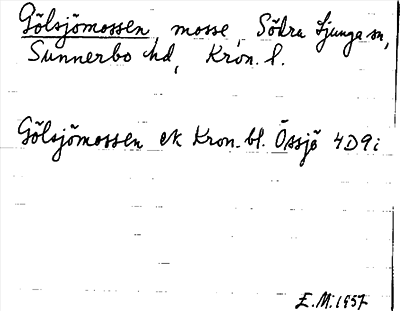 Gölsjömossen, mosse, Södra Ljunga sn,
Sunnerbo hd, Kron. l.
Gölsjömossen ek Kron. bl. Össjö 4D9i
E.M. 1957